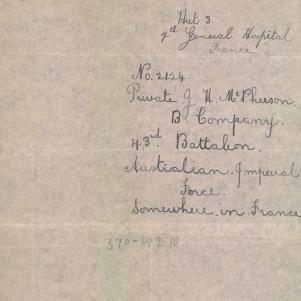 Hut 3.
4th General Hospital
France
No. 2124.
Private J. H. McPherson.
B Company.
43rd. Battalion.
Australian. Imperial
Force.
Somewhere. in. France